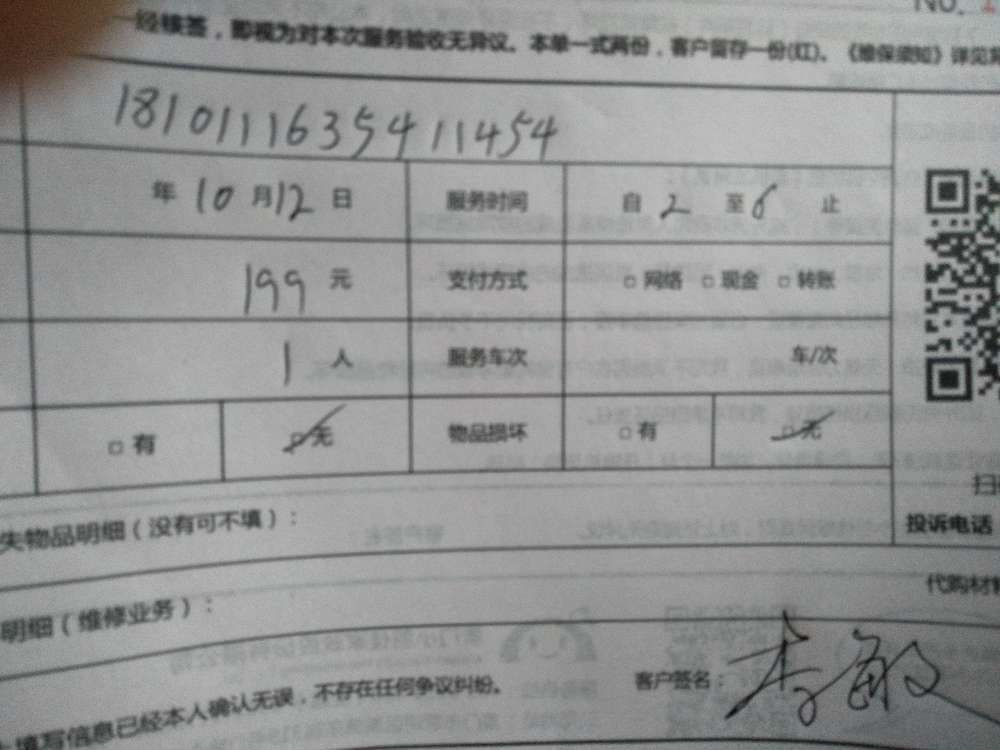 No. 1
一经核签，即视为对本次服务验收无异议。本单一式两份，客户留存一份(红)。《维保须知》详见
18101116354411454
年 10 月 12 日 服务时间 自 2 至 6 止
199 元 支付方式 □ 网络 □ 现金 □ 转账
1 人 服务车次 车/次
□ 有 ☑ 无 物品损坏 □ 有 ☑ 无
扫
失物品明细（没有可不填）：
投诉电话
代购材料
明细（维修业务）：
填写信息已经本人确认无误，不存在任何争议纠纷。
客户签名：李敏